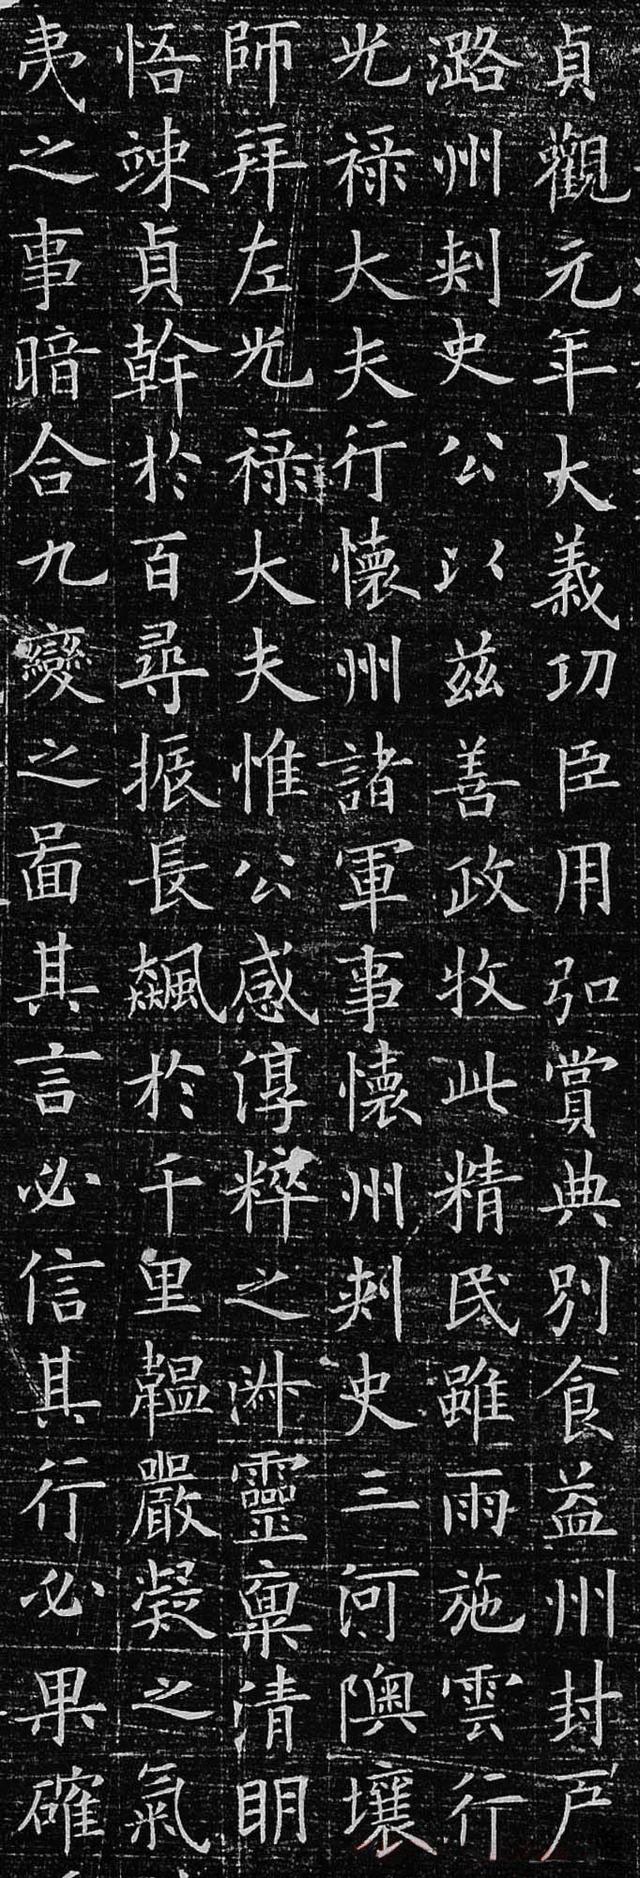 貞觀元年大義功臣用弘賞典別食益州封戶
潞州刺史公以茲善政牧此精民雖雨施雲行
光祿大夫行懷州諸軍事懷州刺史三河隩壤
師拜左光祿大夫惟公感淳粹之淋靈稟清明
悟竦貞幹於百尋振長飆於千里韞嚴凝之氣
夷之事暗合九變之圖其言必信其行必果確